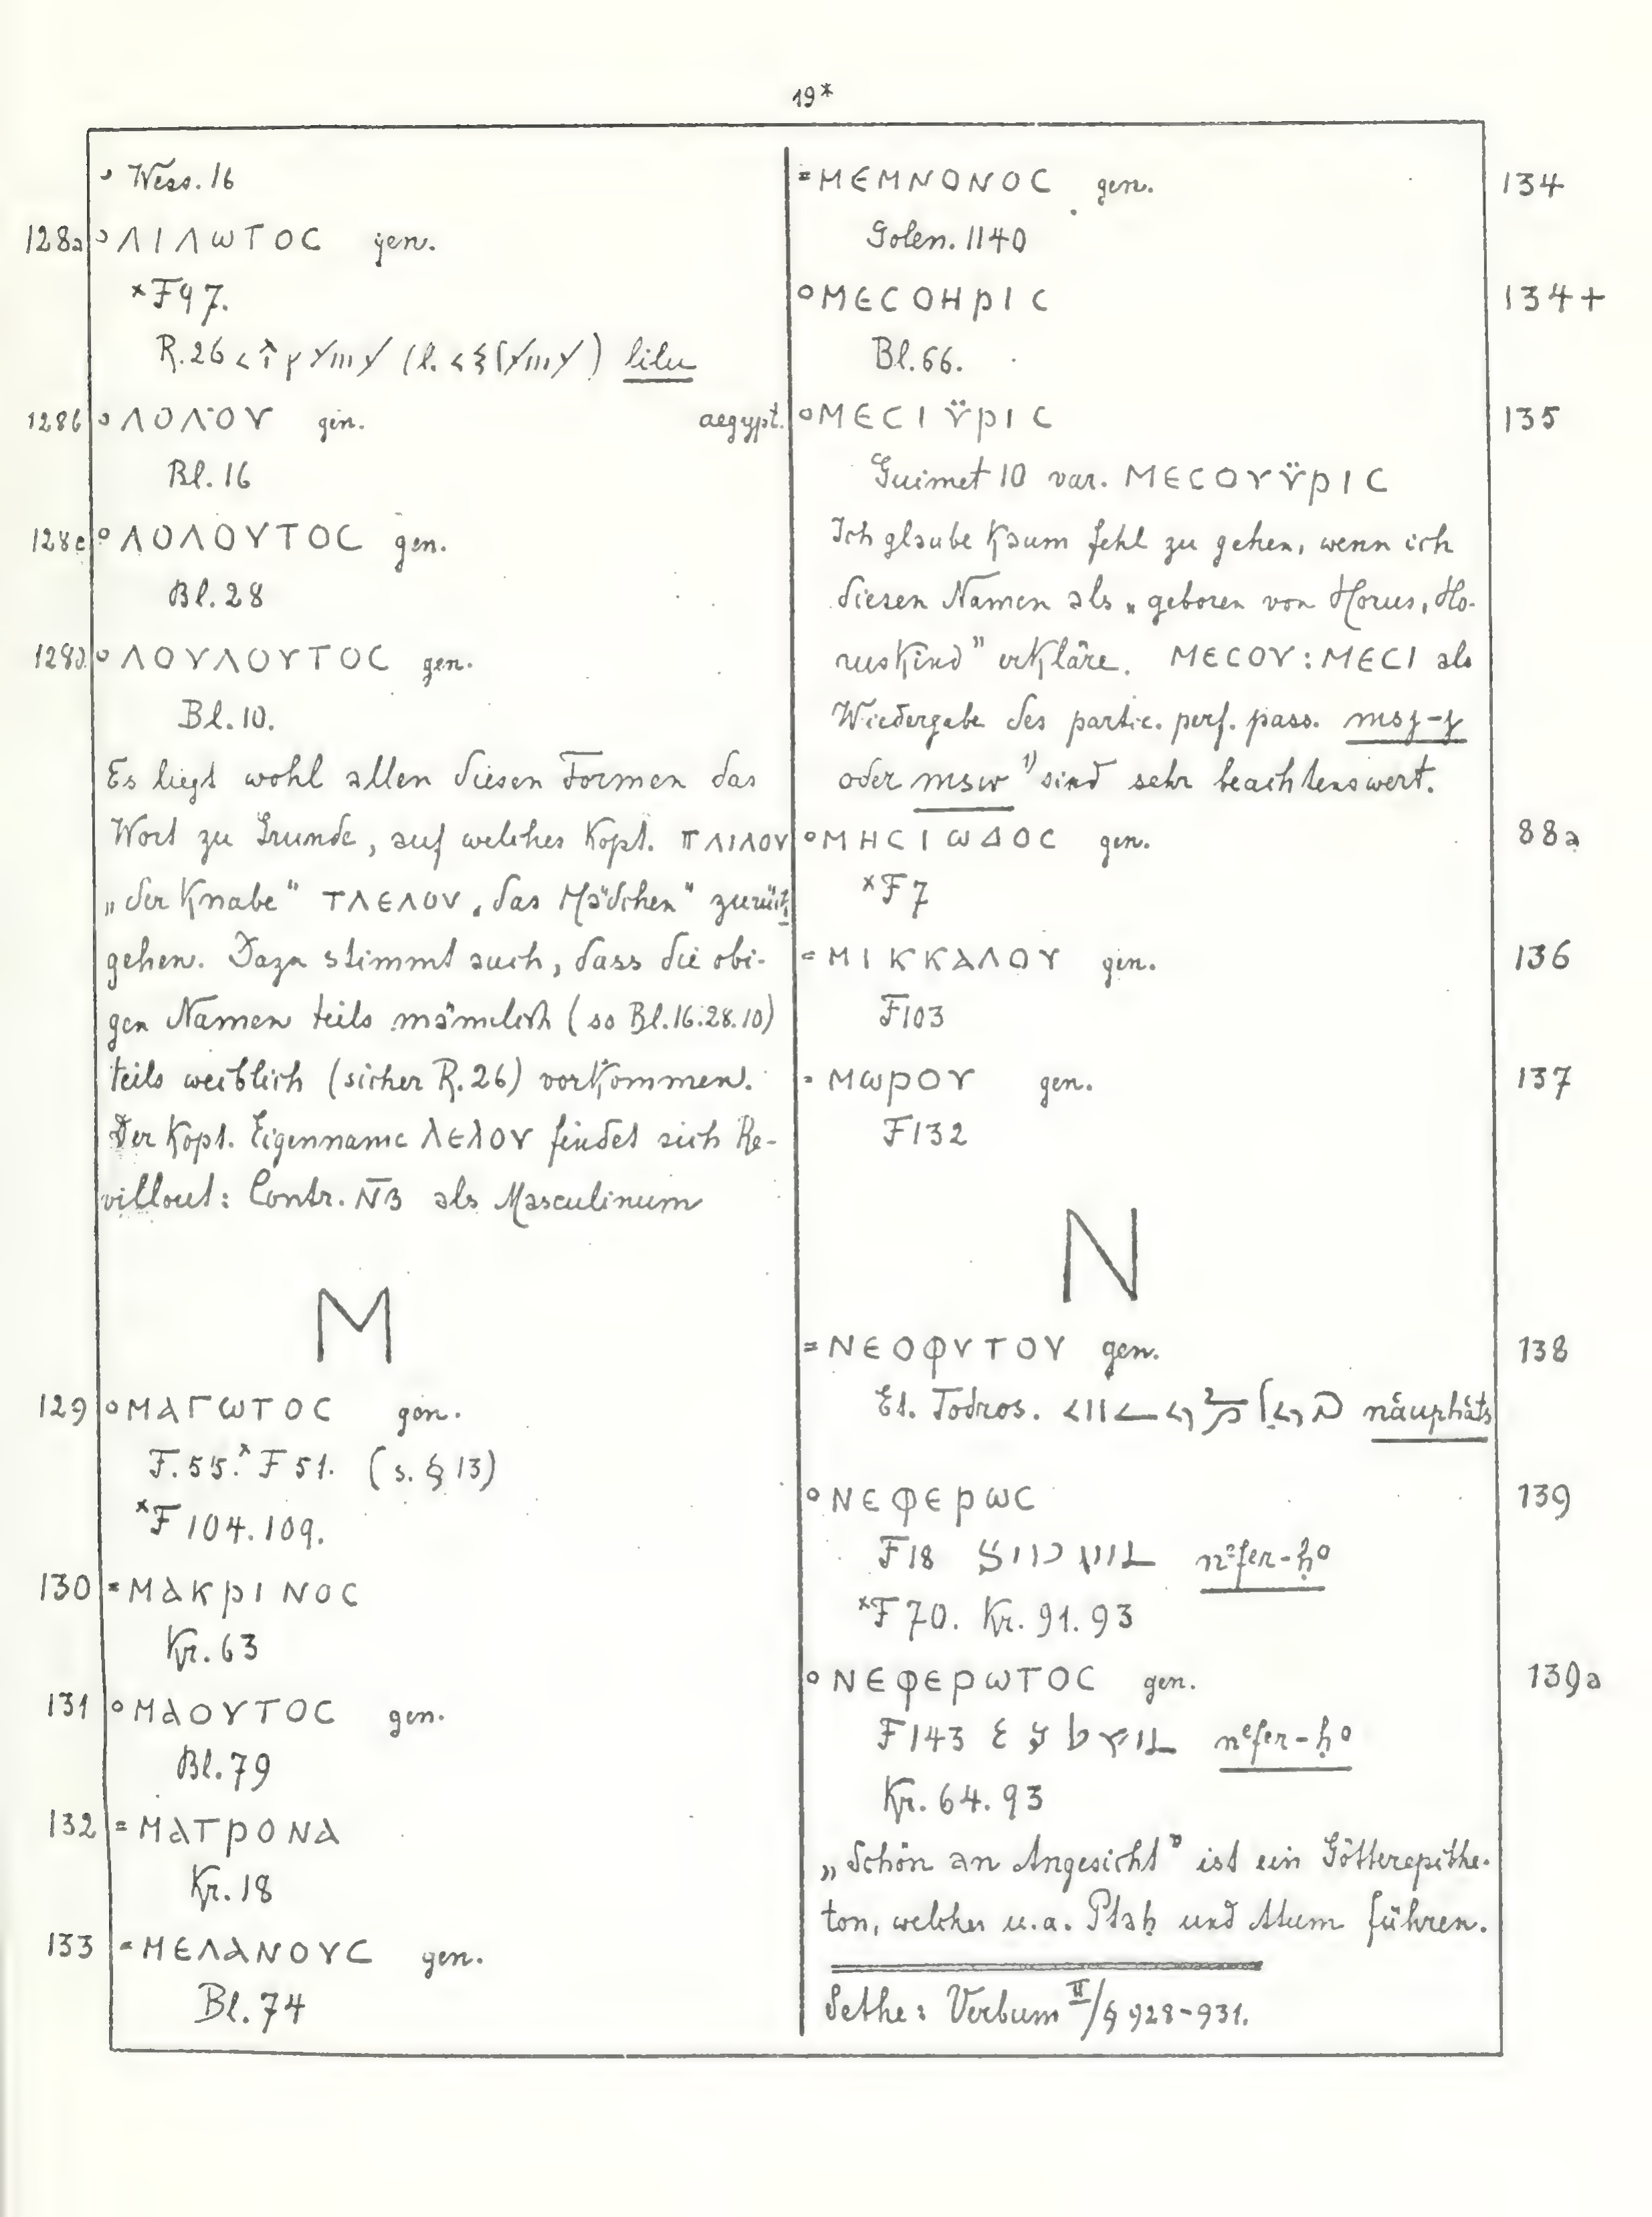 19*
Wess. 16
128a ΛΙΛωΤΟC gen.
*F97.
R. 26 (l. ) lilu
128b ΛΟΛΟΥ gen.
Bl. 16
128c °ΛΟΛΟΥΤΟC gen.
Bl. 28
128d °ΛΟΥΛΟΥΤΟC gen.
Bl. 10.
Es liegt wohl allen diesen Formen das
Wort zu Grunde, auf welches Kopt. ΠΛΙΛΟΥ
„der Knabe" ΤΛΕΛΟΥ „das Mädchen" zurück
gehen. Dazu stimmt auch, dass die obi-
gen Namen teils männlich (so Bl. 16. 28. 10)
teils weiblich (sicher R. 26) vorkommen.
Der Kopt. Eigenname λελου findet sich Re-
villout: Contr. als Masculinum
M
129 °ΜΑΓωΤΟC gen.
F. 55. *F 51. (s. § 13)
*F 104. 109.
130 =ΜΑΚΡΙΝΟC
Kr. 63
131 °ΜΑΟΥΤΟC gen.
Bl. 79
132 =ΜΑΤΡΟΝΑ
Kr. 18
133 =ΜΕΛΑΝΟΥC gen.
Bl. 74
=ΜΕΜΝΟΝΟC gen. 134
Golen. 1140
°ΜΕCΟΗΡΙC 134+
Bl. 66.
aegypt. °ΜΕCΙΫΡΙC 135
Guimet 10 var. ΜΕCΟΥΫΡΙC
Ich glaube kaum fehl zu gehen, wenn ich
diesen Namen als „geboren von Horus, Ho-
ruskind" erkläre. ΜΕCΟΥ : ΜΕCΙ als
Wiedergabe des partic. perf. pass. msj-j
oder msw ¹) sind sehr beachtenswert.
°ΜΗCΙωΔΟC gen. 88a
*F 7
=ΜΙΚΚΑΛΟΥ gen. 136
F 103
=ΜωΡΟΥ gen. 137
F 132
N
=ΝΕΟΦΥΤΟΥ gen. 138
Et. Todros. näuphäts
°ΝΕΦΕΡωC 139
F 18 nᵉfer-ḥo
*F 70. Kr. 91. 93
°ΝΕΦΕΡωΤΟC gen. 139a
F 143 nᵉfer-ḥo
Kr. 64. 93
„Schön an Angesicht" ist ein Götterepithe-
ton, welches u. a. Ptaḥ und Atum führen.
Sethe: Verbum II/§ 928-931.